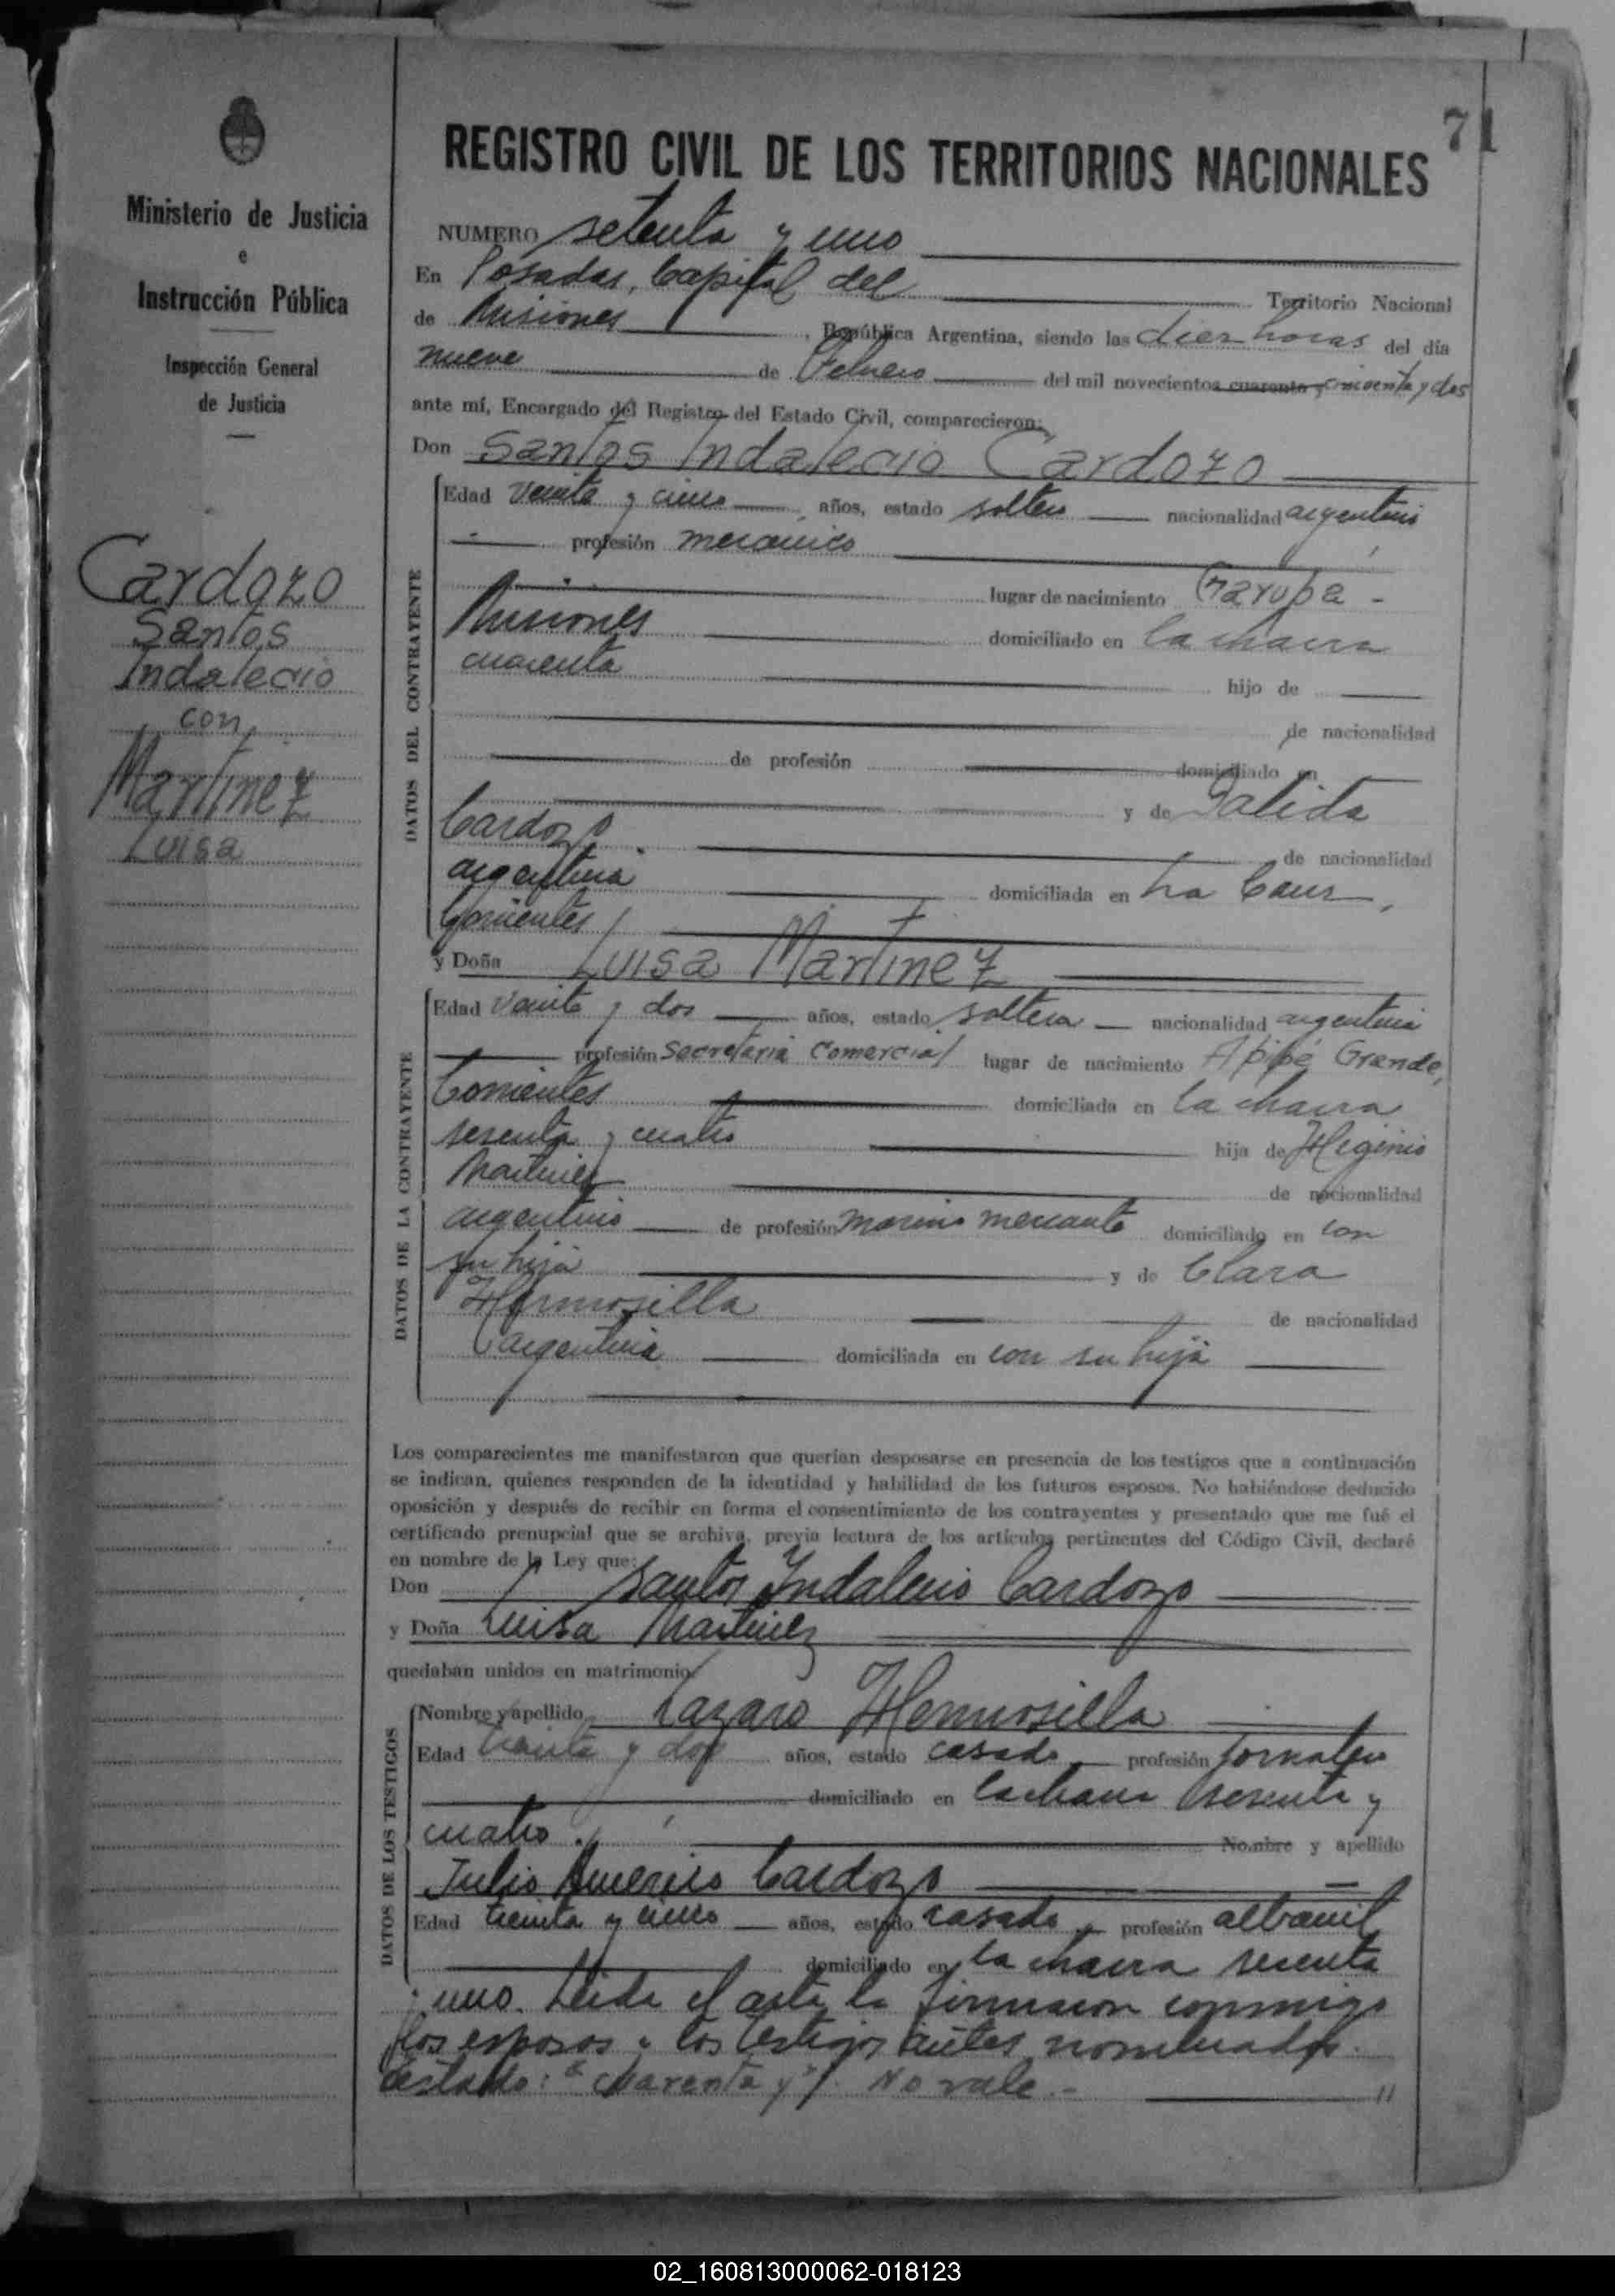 71
Ministerio de Justicia
e
Instrucción Pública
Inspección General
de Justicia
Cardozo
Santos
Indalecio
con
Martinez
Luisa
REGISTRO CIVIL DE LOS TERRITORIOS NACIONALES
NUMERO setenta y uno
En Posadas, Capital del Territorio Nacional
de Misiones, República Argentina, siendo las diez horas del día
nueve de Febrero del mil novecientos cuarenta y cincuenta y dos
ante mí, Encargado del Registro del Estado Civil, comparecieron:
Don Santos Indalecio Cardozo
DATOS DEL CONTRAYENTE
Edad veinte y cinco años, estado soltero nacionalidad argentino
profesión mecanico
lugar de nacimiento Garupa -
Misiones domiciliado en la chacra
cuarenta hijo de
de nacionalidad
de profesión domiciliado en
y de
Cardozo de nacionalidad
argentina domiciliada en
Corrientes
y Doña Luisa Martinez
DATOS DE LA CONTRAYENTE
Edad veinte y dos años, estado soltera nacionalidad argentina
profesión Secretaria Comercial lugar de nacimiento Apipé Grande,
Corrientes domiciliada en la chacra
sesenta y cuatro hija de Higinio
Martinez de nacionalidad
argentino de profesión marino mercante domiciliado en con
su hija y de Clara
Hermosilla de nacionalidad
argentina domiciliada en con su hija
Los comparecientes me manifestaron que querían desposarse en presencia de los testigos que a continuación
se indican, quienes responden de la identidad y habilidad de los futuros esposos. No habiéndose deducido
oposición y después de recibir en forma el consentimiento de los contrayentes y presentado que me fué el
certificado prenupcial que se archiva, previa lectura de los artículos pertinentes del Código Civil, declaré
en nombre de la Ley que:
Don Santos Indalecio Cardozo
y Doña Luisa Martinez
quedaban unidos en matrimonio
DATOS DE LOS TESTIGOS
Nombre y apellido Lazaro Hermosilla
Edad treinta y dos años, estado casado profesión jornalero
domiciliado en la chacra sesenta y
cuatro. Nombre y apellido
Julio Americo Cardozo
Edad treinta y cinco años, estado casado profesión albañil
domiciliado en la chacra sesenta
y uno. Leida el acta la firmaron conmigo
los esposos y los testigos antes nombrados.
Testado: "cuarenta y". No vale.- //
02_160813000062-018123